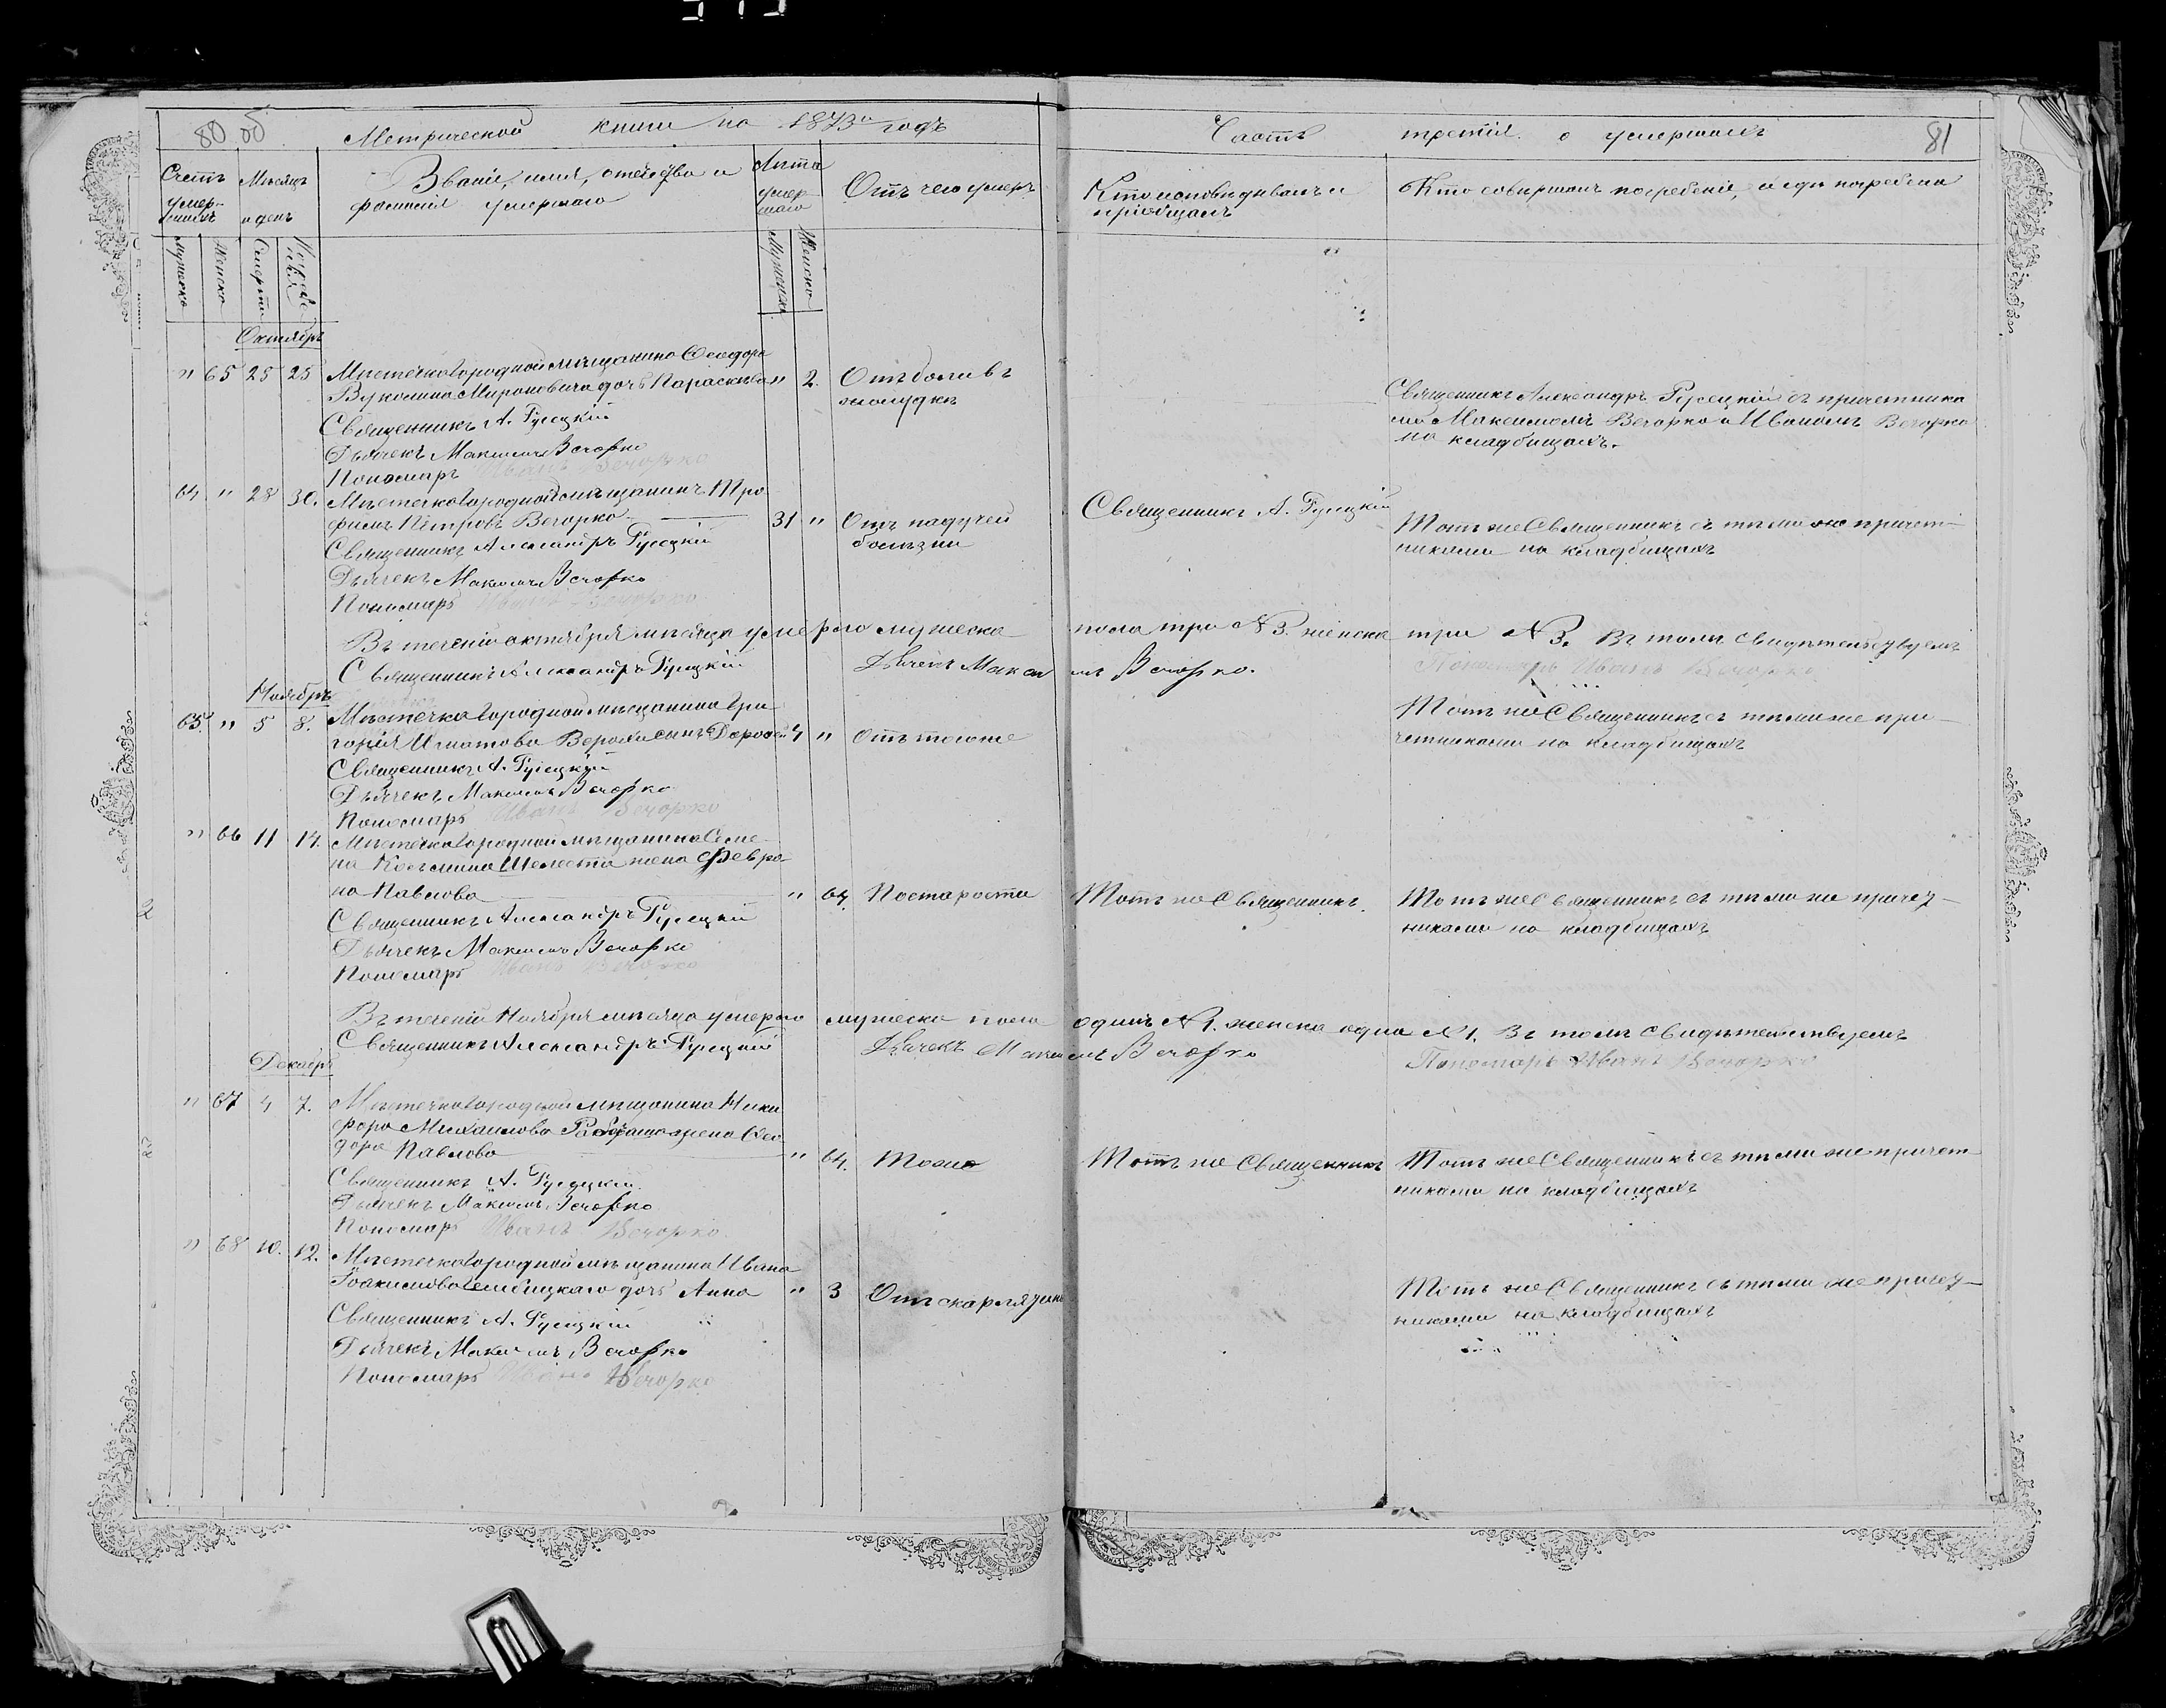 80 об
Метрической книги на 1873й годъ
Счетъ умер-шихъ
Мѣсяцъ и день
Званіе, имя, отечество и фамилія умершаго
Лѣта умер-шаго
Отъ чего умеръ
Мужеска
Женска
Смерти
Мужеска
Женска
Октябрь
" 65 25 25 Мѣстечка Городной мѣщанина Ѳеодора
Вуколина Мироновича дочь Параскева " 2. Отъ боли въ
желудкѣ
Священникъ А. Гурецкій
Дьячекъ Максимъ Вечорко
Пономарь Иванъ Вечорко
64 " 28 30. Мѣстечка Городной мѣщанинъ Тро
фимъ Петровъ Вечорко 31 " Отъ падучей
болѣзни
Священникъ Александръ Гурецкій
Дьячекъ Максимъ Вечорко
Пономарь Иванъ Вечорко
Въ теченіи октября мѣсяца умерло мужеска
Священникъ Александръ Гурецкій Дьячекъ Максимъ Вечорко.
Ноябрь
65. " 5 8. Мѣстечка Городной мѣщанина Гри
горія Игнатова сынъ Дорофей 4 " Отъ того же
Священникъ А. Гурецкій
Дьячекъ Максимъ Вечорко
Пономарь Иванъ Вечорко
" 66 11 14. Мѣстечка Городной мѣщанина Семе-
на Козьмина Шелеста жена Февро-
на Павлова " 64. По старости
Священникъ Александръ Гурецкій
Дьячекъ Максимъ Вечорко
Пономарь Иванъ Вечорко
Въ теченіи Ноября мѣсяца умерло мужеска пола
Священникъ Александръ Гурецкій Дьячекъ Максимъ Вечорко
Декабрь
" 67 4 7. Мѣстечка Городной мѣщанина Ники
фора Михаилова жена Ѳео
дора Павлова " 64. Тоже
Священникъ А. Гурецкій.
Дьячекъ Максимъ Вечорко
Пономарь Иванъ Вечорко.
" 68 10. 12. Мѣстечка Городной мѣщанина Ивана
Іоакимова дочь Анна " 3 Отъ скарлятины
Священникъ А. Гурецкій
Дьячекъ Максимъ Вечорко
Пономарь Иванъ Вечорко
Часть третія о умершихъ
81
Кто исповѣдывалъ и пріобщалъ
Кто совершалъ погребеніе, и гдѣ погребены
Священникъ Александръ Гурецкій съ причетника
ми Максимомъ Вечорко и Иваномъ Вечорко
на кладбищахъ.
Священникъ А. Гурецкій
Тотъ же Священникъ съ тѣми же причет-
никами на кладбищахъ
пола три № 3. женска три № 3. Въ томъ свидѣтельствуемъ
Пономарь Иванъ Вечорко
Тотъ же Священникъ съ тѣми же при-
четниками на кладбищахъ
Тотъ же Священникъ.
Тотъ же Священникъ съ тѣми же причет-
никами на кладбищахъ
одинъ № 1. женска одна № 1. Въ томъ свидѣтельствуемъ
Пономарь Иванъ Вечорко
Тотъ же Священникъ
Тотъ же Священникъ съ тѣми же причет-
никами на кладбищахъ
Тотъ же Священникъ съ тѣми же причет-
никами на кладбищахъ